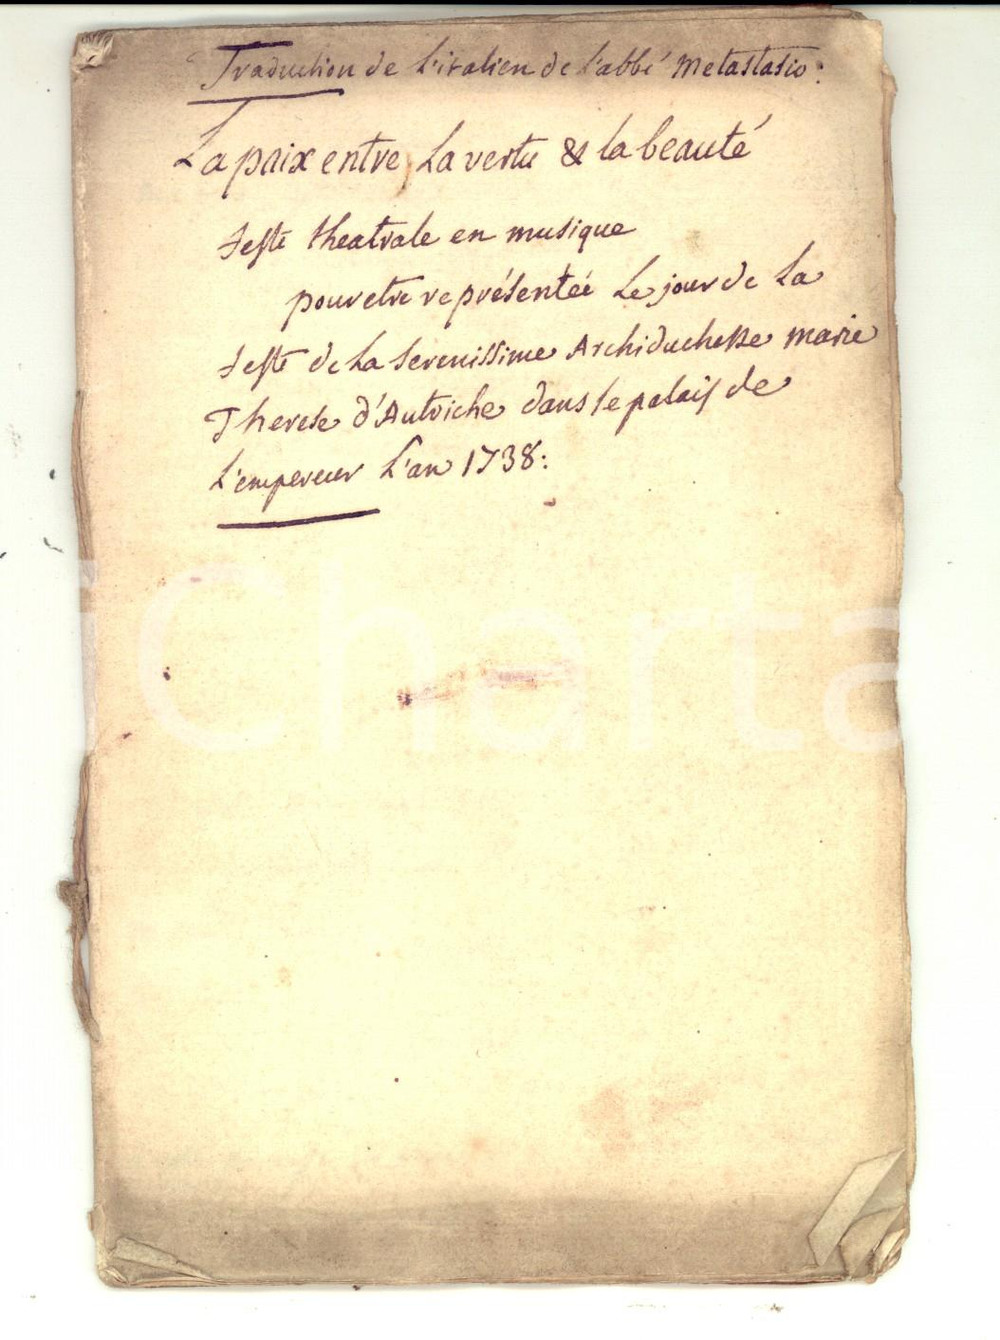 Traduction de L'italien de l'abbé Metastasio:
La paix entre La vertu & la beauté
feste theatrale en musique
pour etre représentée Le jour de La
feste de La serenissime Archiduchesse marie
Therese d'Autriche dans le palais de
L'empereur L'an 1738:
iCharta